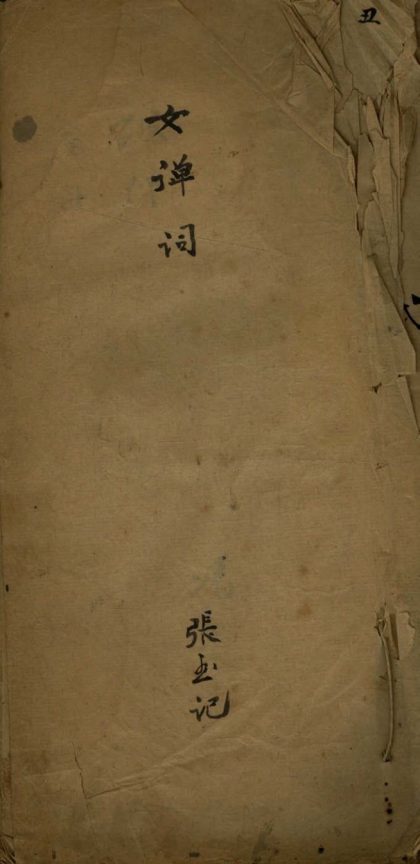 丑
女弹词
張玉记